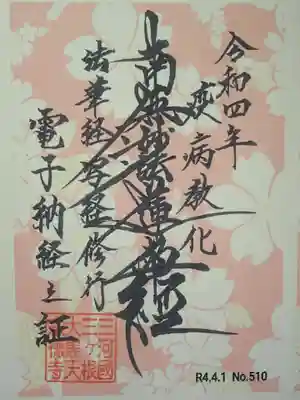 令和四年
疫病教化
南無妙法蓮華経
法華経写経修行
電子納経之証
三河國
三ヶ根
R4.4.1 No.510